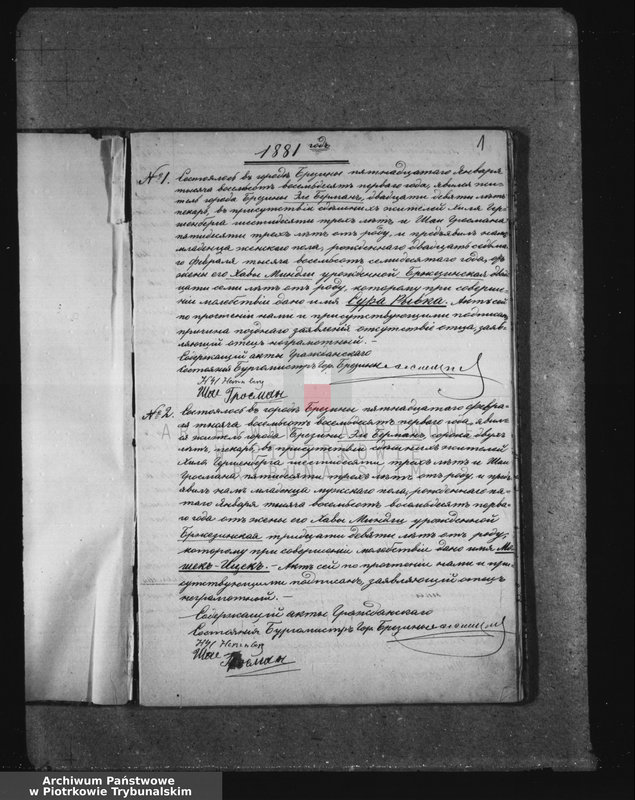 1881 годъ
1
№1. Состоялось въ городѣ Брезинахъ пятнадцатаго Января
тысяча восемьсотъ восемьдесятъ перваго года, явился жи-
тель города Брезины Эле Берманъ, двадцати девяти лѣтъ
пекарь, въ присутствіи здѣшнихъ жителей Хиля Гер-
шенберга шестидесяти трехъ лѣтъ и Шаи Гросмана
пятидесяти трехъ лѣтъ отъ роду, и предъявилъ намъ
младенца женскаго пола, рожденнаго двадцать седьма-
го февраля тысяча восемьсотъ семидесятаго года, отъ
жены его Хавы Миндли урожденной Бржезинская двад-
цати семи лѣтъ отъ роду, которому при соверше-
ніи молебствіи дано имя Сура Рывка. Актъ сей
по прочтеніи нами и присутствующими подписанъ,
причина поздняго заявленія отсутствіе отца, заяв-
ляющій отецъ неграмотный. —
Содержащій акты Гражданскаго
Состоянія Бургомистръ Гор. Брезины
Шае Гросман
№2. Состоялось въ городѣ Брезинахъ пятнадцатаго февра-
ля тысяча восемьсотъ восемьдесятъ перваго года, явил-
ся житель города Брезины Эле Берманъ, сорока двухъ
лѣтъ, пекарь, въ присутствіи здѣшнихъ жителей
Хиля Гершенберга шестидесяти трехъ лѣтъ и Шаи
Гросмана пятидесяти трехъ лѣтъ отъ роду, и пред-
явилъ намъ младенца мужскаго пола, рожденнаго пя-
таго Января тысяча восемьсотъ восемьдесятъ перва-
го года отъ жены его Хавы Миндли урожденной
Бржезинская тридцати девяти лѣтъ отъ роду,
которому при совершеніи молебствіи дано имя Мо-
шекъ-Ицекъ. — Актъ сей по прочтеніи нами и при-
сутствующими подписанъ, заявляющій отецъ
неграмотный. —
Содержащій акты Гражданскаго
Состоянія Бургомистръ Гор. Брезины
Шае Гросман
ARCHIWUM PAŃSTWOWE
W PIOTRKOWIE
TRYBUNALSKIM
Archiwum Państwowe
w Piotrkowie Trybunalskim